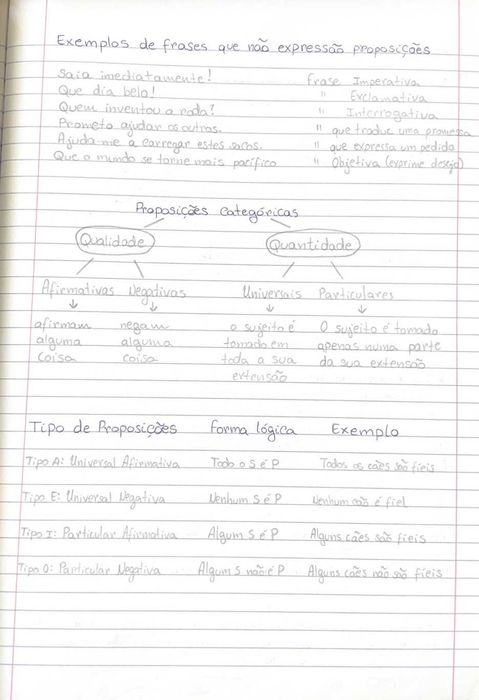 Exemplos de frases que não expressão proposições
Saia imediatamente! Frase Imperativa
Que dia belo! " Exclamativa
Quem inventou a roda? " Interrogativa
Prometo ajudar os outros. " que traduz uma promessa
Ajuda-me a carregar estes sacos. " que expressa um pedido
Que o mundo se torne mais pacífico " Objetiva (exprime desejo)
Proposições categóricas
Qualidade Quantidade
Afirmativas Negativas Universais Particulares
afirmam negam o sujeito é O sujeito é tomado
alguma alguma tomado em apenas numa parte
coisa coisa toda a sua da sua extensão
extensão
Tipo de Proposições Forma lógica Exemplo
Tipo A: Universal Afirmativa Todo o S é P Todos os cães são fieis
Tipo E: Universal Negativa Nenhum S é P Nenhum cão é fiel
Tipo I: Particular Afirmativa Algum S é P Alguns cães são fieis
Tipo O: Particular Negativa Algum S não é P Alguns cães não são fieis